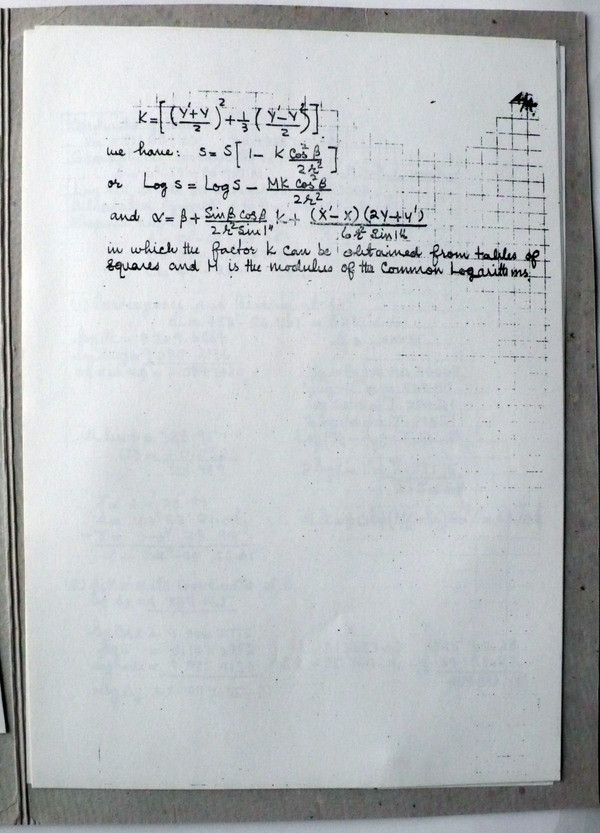 K = [ ( (Y'+Y)/2 )² + 1/3 ( (Y'-Y)/2 )² ]
we have: s = S [ 1 - K cos²β / 2r² ]
or Log s = Log S - MK cos²β / 2r²
and α = β + Sinβ cosβ / 2r² Sin1" K + (X'-X)(2Y+Y') / 6r² Sin1"
in which the factor K can be obtained from tables of
squares and M is the modulus of the Common Logarithms.